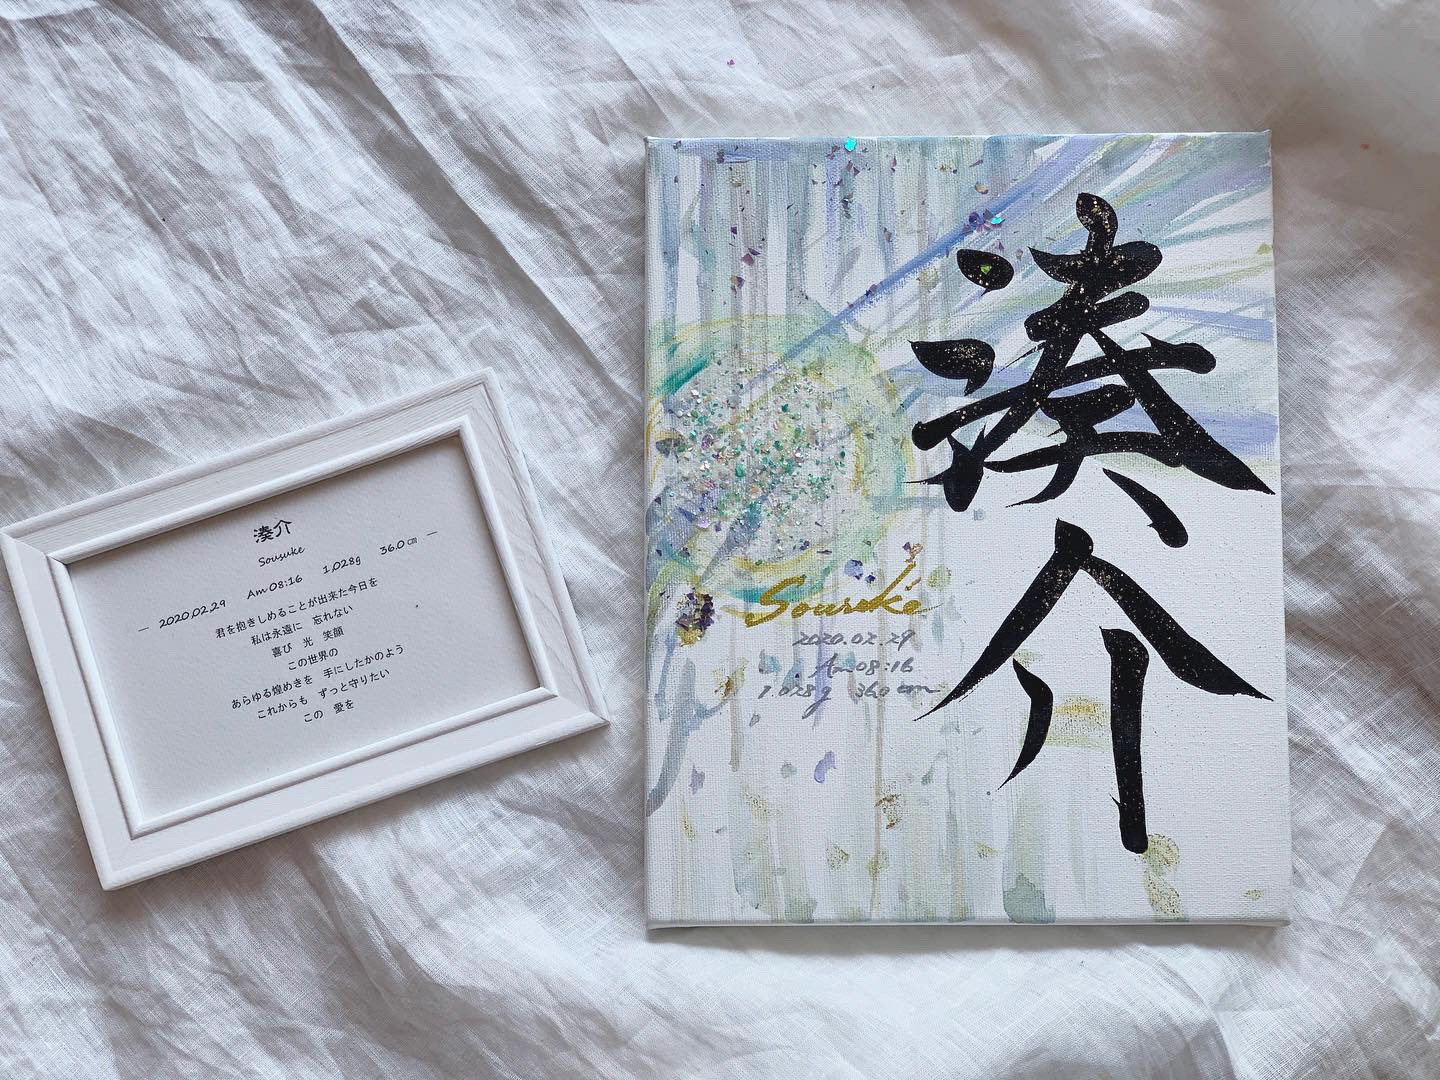 湊介
Sousuke
— 2020.02.29 Am 08:16 1.028g 36.0㎝ —
君を抱きしめることが出来た今日を
私は永遠に 忘れない
喜び 光 笑顔
この世界の
あらゆる煌めきを 手にしたかのよう
これからも ずっと守りたい
この 愛を
湊介
Sousuke
2020.02.29
Am 08:16
1.028g 36.0cm